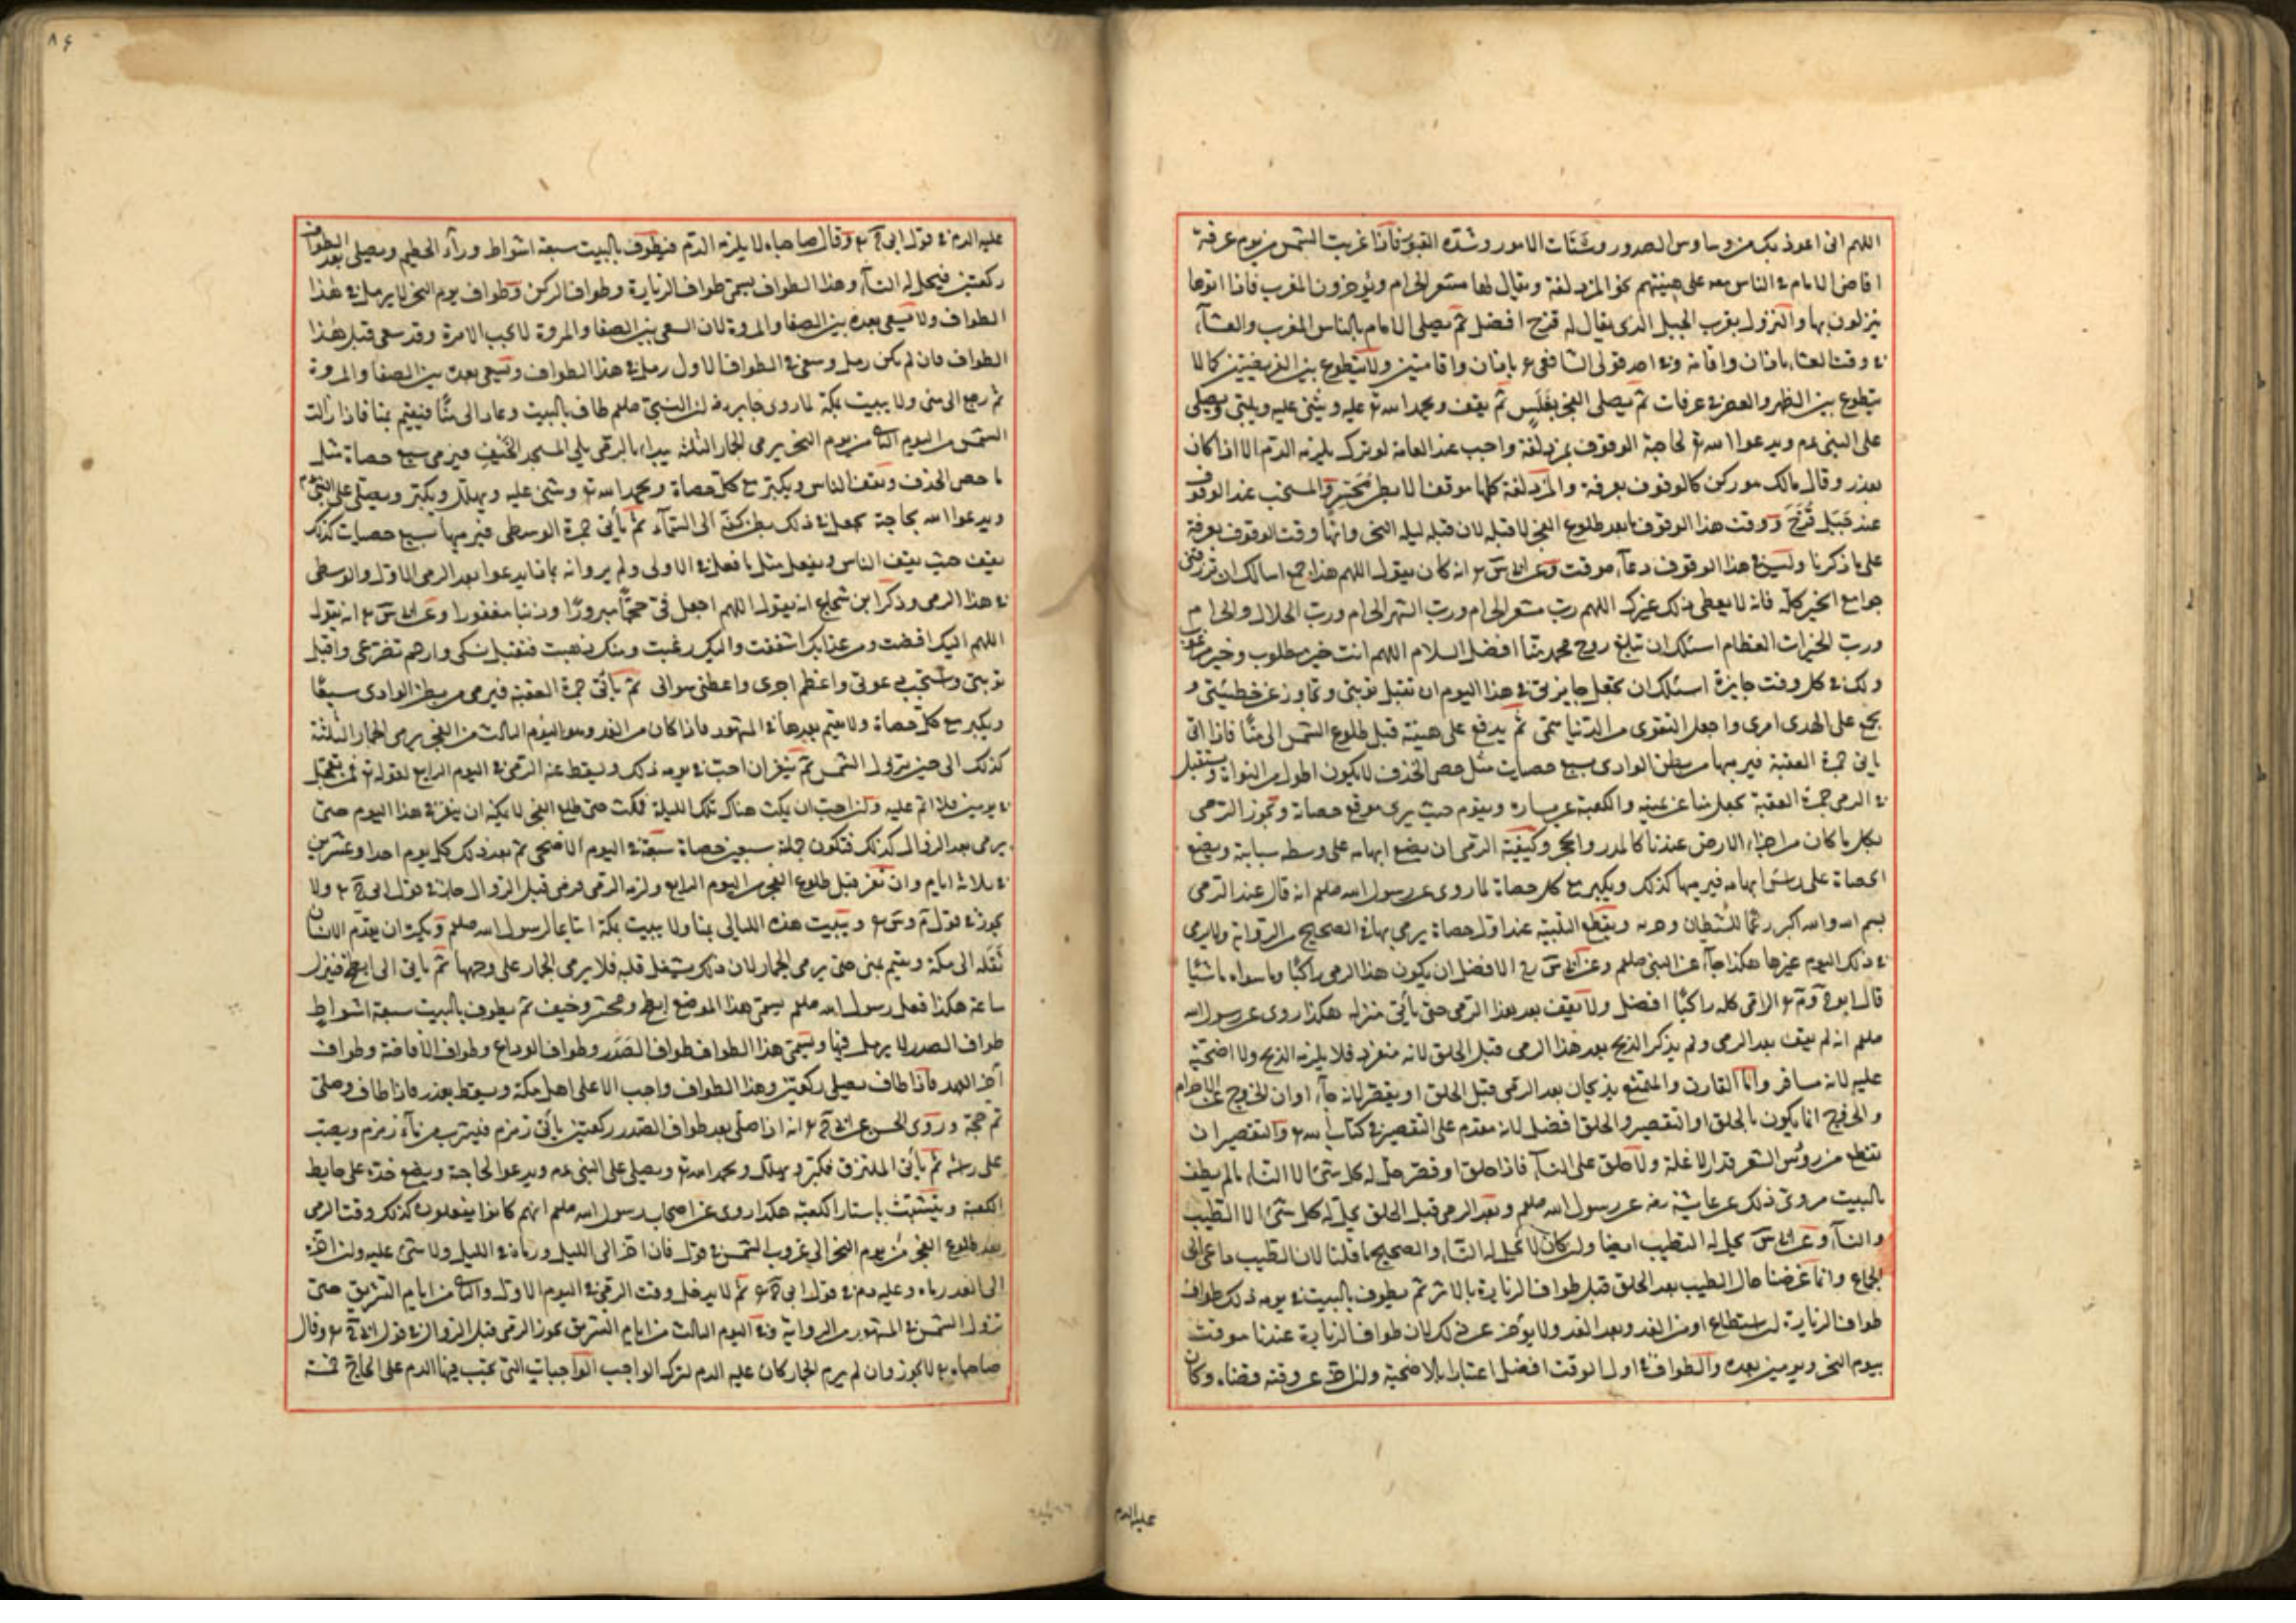 اللهم انى اعوذ بك من وساوس الصدور وشتات الامور وشدة القبور فاذا غربت الشمس من يوم عرفة
افاض الامام و الناس معه على هينتهم نحو المزدلفة ويقال لها مشعر الحرام ويؤخرون المغرب فاذا اتوها
ينزلون بها والنزول بقرب الجبل الذى يقال له قزح افضل ثم يصلى الامام بالناس المغرب والعشآء
فى وقت العشاء باذان واقامة وفى احد قولى الشافعى باذان واقامتين ولا يتطوع بين الفريضتين كما لا
يتطوع بين الظهر والعصر فى عرفات ثم يصلى الفجر بغلس ثم يقف ويحمد الله تع ويثنى عليه ويلبى ويصلى
على النبى عم ويدعوا الله تع لحاجته الوقوف بمزدلفة واجب عند العامة لو تركه يلزمه الدم الا اذا كان
بعذر وقال مالك هو ركن كالوقوف بعرفة والمزدلفة كلها موقف الا بطن محسر والمستحب عند الوقوف
عند جبل قزح ووقت هذا الوقوف ما بعد طلوع الفجر لا قبله لان قبله ليلة النحر وانها وقت الوقوف بعرفة
على ما ذكرنا وليس فى هذا الوقوف دعآء موقت وعن انه كان يقول اللهم هذا جمع اسالك ان ترزقنى
جوامع الخير كله فانه لا يعطى ذلك غيرك اللهم رب مشعر الحرام ورب الشهر الحرام ورب الحلال والحرام
ورب الخيرات العظام اسئلك ان تبلغ روح محمد منا افضل السلام اللهم انت خير مطلوب وخير مرغوب
ولك فى كل وقت جايزة اسئلك ان تجعل جايزتى فى هذا اليوم ان تقبل توبتى وتجاوز عن خطيئتى و
تجمع على الهدى امرى واجعل التقوى من الدنيا همى ثم يدفع على هينته قبل طلوع الشمس الى منا فاذا اتى
ياتى جمرة العقبة فيرميها من بطن الوادى بسبع حصيات مثل حصى الخذف لا يكون اطول من النواة ويستقبل
فى الرمى جمرة العقبة يجعل منا عن يمينه والكعبة عن يساره ويقوم حيث يرى موقع حصاته ويجوز الرمى
بكل ما كان من اجزاء الارض عندنا كالمدر والحجر وكيفية الرمى ان يضع ابهامه على وسط سبابته ويضع
الحصاة على راس ابهامه فيرميها كذلك ويكبر مع كل حصاة لما روى عن رسول الله صلعم انه قال عند الرمى
بسم الله والله اكبر رغما للشيطان وحزبه ويقطع التلبية عند اول حصاة يرمى بها فى الصحيح من الرواية ولا يرمى
فى ذلك اليوم غيرها هكذا جآء عن النبى صلعم وعن الافضل ان يكون هذا الرمى راكبًا وما سواه ماشيًا
قال ابو الرمى كله راكبًا افضل ولا يقف بعد هذا الرمى حتى يأتى منزله هكذا روى عن رسول الله
صلعم انه لم يقف بعد الرمى ولم يذكر الذبح بعد هذا الرمى قبل الحلق لانه منفرد فلا يلزمه الذبح ولا اضحية
عليه لانه مسافر واما القارن والمتمتع يذبحان بعد الرمى قبل الحلق او يقصر لانه جآء اوان الخروج عن الاحرام
والخروج انما يكون بالحلق او التقصير والحلق افضل لانه مقدم على التقصير فى كتاب الله تع والتقصير ان
تقطع من رؤس الشعر قدر الانملة ولا حلق على النسآء فاذا حلق او قصر حل له كل شئ الا النساء ما لم يطف
بالبيت مروى ذلك عن عايشة رضه عن رسول الله صلعم وبعد الرمى قبل الحلق يحل له كل شئ الا التطيب
والنسآء وعن يحل له التطيب ايضا وان كان لا يحل له النساء والصحيح ما قلنا لان التطيب داعى الى
الجماع وانما عرفنا حال الطيب بعد الحلق قبل طواف الزيارة بالاثر ثم يطوف بالبيت فى يومه ذلك طواف
طواف الزيارة ان استطاع او من الغد وبعد الغد ولا يؤخر عن ذلك لان طواف الزيارة عندنا موقت
بيوم النحر ويومين بعده والطواف فى اول الوقت افضل اعتبارا بالاضحية ولو اخره عن وقته قضاه وكان
عليه الدم
عليه الدم فى قول ابى وقال صاحباه لا يلزمه الدم فيطوف بالبيت سبعة اشواط ورآء الحطيم ويصلى بعد الطواف
ركعتين فيحل له النسآء وهذا الطواف يسمى طواف الزيارة وطواف الركن وطواف يوم النحر لا يرمل فى هذا
الطواف ولا يسعى بعده بين الصفا والمروة لان السعى بين الصفا والمروة لا يجب الا مرة وقد سعى قبل هذا
الطواف فان لم يكن رمل وسعى فى الطواف الاول رمل فى هذا الطواف ويسعى بعده بين الصفا والمروة
ثم رجع الى منى ولا يبيت بمكة لما روى جابر ان النبى صلعم طاف بالبيت وعاد الى منًا فيقيم بمنا فاذا زالت
الشمس من اليوم الثانى من يوم النحر يرمى الجمار الثلث يبداء بالرمى يلى المسجد الخيف فيرمى سبع حصاة مثل
ما حصى الخذف ويقف الناس ويكبر مع كل حصاة ويحمد الله تع ويثنى عليه ويهلل ويكبر ويصلى على النبى عم
ويدعوا الله بحاجته يجعل فى ذلك بطن كفه الى السمآء ثم يأتى جمرة الوسطى فيرميها سبع حصيات كذلك
يقف حيث يقف الناس ويفعل مثل ما فعل فى الاولى ولم يروانه بماذا يدعوا بعد الرمى الاول والوسطى
فى هذا الرمى وذكر ابن شجاع انه يقول اللهم اجعل لى حجًّا مبرورًا وذنبا مغفورا وعن انه يقول
اللهم اليك افضت ومن عذابك اشفقت واليك رغبت ومنك رهبت فتقبل نسكى وارحم تضرعى واقبل
توبتى واستجب دعوتى واعظم اجرى واعطنى سؤالى ثم يأتى جمرة العقبة فيرمى من بطن الوادى سبعًا
ويكبر مع كل حصاة ولا يقيم بعدها فى المشهور فاذا كان من الغد وهو اليوم الثالث من النحر يرمى الجمار الثلثة
كذلك الى حين تزول الشمس ثم ينفر ان احب فى يومه ذلك ويسقط عنه الرمى فى اليوم الرابع لقوله تع فمن تعجل
فى يومين فلا اثم عليه وان احب ان يمكث هناك تلك الليلة فمكث حتى طلع الفجر لا يمكنه ان ينفر فى هذا اليوم حتى
يرمى بعد الزوال كذلك فتكون جملة سبعين حصاة سبعة فى اليوم الاضحى ثم بعد ذلك كل يوم احد وعشرين
فى ثلاثة ايام وان نفر قبل طلوع الفجر من اليوم الرابع ولزمه الرمى ورمى قبل الزوال جاز فى قول ابى ولا
يجوز فى قول ويبيت هذه الليالى بمنا ولا يبيت بمكة اتباعا لرسول الله صلعم ويكره ان يقدم الانسان
ثقله الى مكة ويقيم بمنى حتى يرمى الجمار لان ذلك يشغل قلبه فلا يرمى الجمار على وجهها ثم ياتى الى ابطح فينزل
ساعة هكذا فعل رسول الله صلعم يسمى هذا الموضع ابطح ومحسر وخيف ثم يطوف بالبيت سبعة اشواط
طواف الصدر لا يرمل فيها ويسمى هذا الطواف طواف الصدر وطواف الوداع وطواف الافاضة وطواف
آخر العهد فاذا طاف يصلى ركعتين وهذا الطواف واجب الا على اهل مكة ويسقط بعذر فاذا طاف وصلى
تم حجة وروى الحسن عن انه اذا صلى بعد طواف الصدر ركعتين يأتى زمزم فيشرب من مآء زمزم ويصب
على رأسه ثم يأتى الملتزق فكبر ويهلل ويحمد الله تع ويصلى على النبى عم ويدعوا لحاجته ويضع خده على حايط
الكعبة ويتشبث باستار الكعبة هكذا روى عن اصحاب رسول الله صلعم انهم كانوا يفعلون كذلك وقت الرمى
بعد طلوع الفجر من يوم النحر الى غروب الشمس فى قول فان اخر الى الليل ورماه فى الليل ولا شئ عليه وان اخره
الى الغد رماه وعليه دم فى قول ابى ثم لا يدخل وقت الرمى فى اليوم الاول والثانى من ايام التشريق حتى
تزول الشمس فى المشهور من الرواية وفى اليوم الثالث من ايام التشريق يجوز الرمى قبل الزوال فى قول وقال
صاحباه لا يجوز وان لم يرم الجمار كان عليه الدم لتركه الواجب الواجبات التى يجب فيها الدم على الحاج خمسة